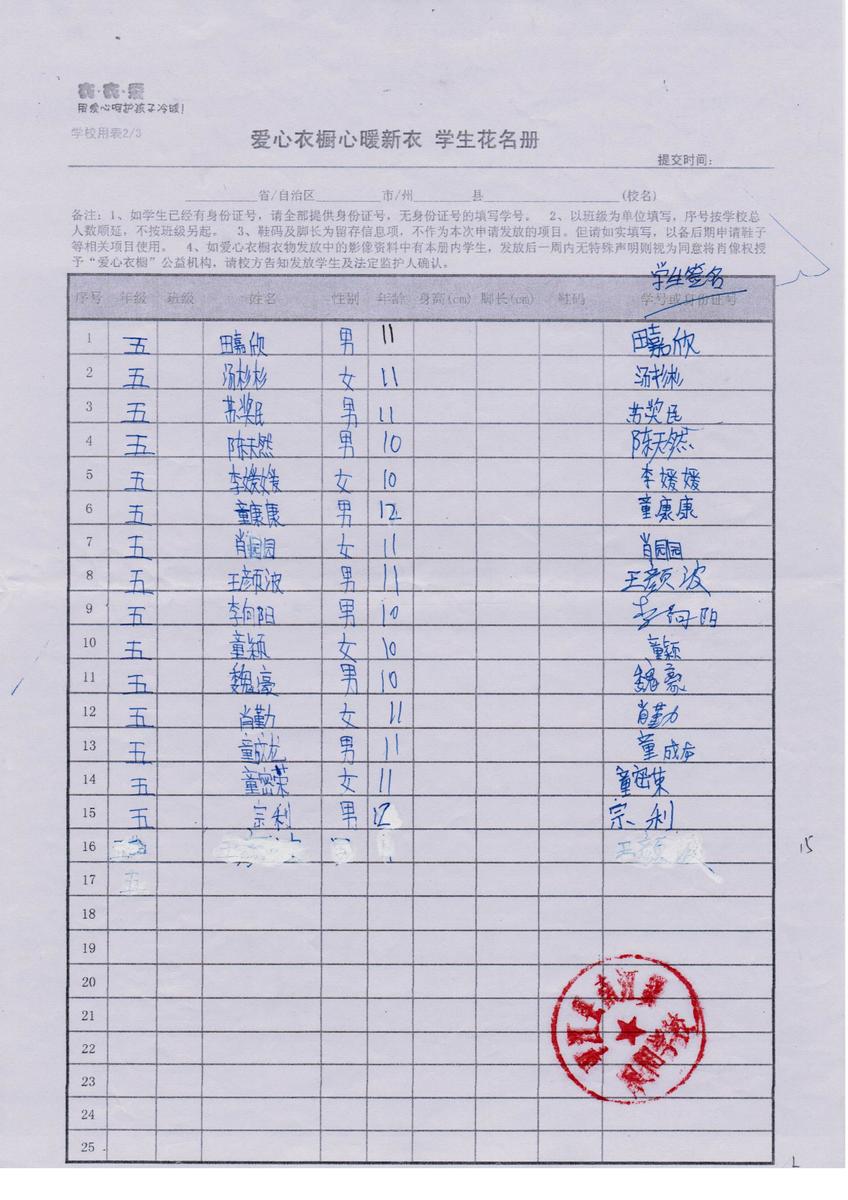 衣·衣·爱
用爱心呵护孩子冷暖!
学校用表2/3
爱心衣橱心暖新衣 学生花名册
提交时间:
省/自治区 市/州 县 (校名)
备注: 1、如学生已经有身份证号, 请全部提供身份证号, 无身份证号的填写学号。 2、以班级为单位填写, 序号按学校总
人数顺延, 不按班级另起。 3、鞋码及脚长为留存信息项, 不作为本次申请发放的项目。但请如实填写, 以备后期申请鞋子
等相关项目使用。 4、如爱心衣橱衣物发放中的影像资料中有本册内学生, 发放后一周内无特殊声明则视为同意将肖像权授
予“爱心衣橱”公益机构, 请校方告知发放学生及法定监护人确认。
学生签名
序号 年级 班级 姓名 性别 年龄 身高(cm) 脚长(cm) 鞋码 学号或身份证号
1 五 田嘉欣 男 11 田嘉欣
2 五 汤杉杉 女 11 汤杉彬
3 五 苏奖民 男 11 苏奖民
4 五 陈天然 男 10 陈天然
5 五 李媛媛 女 10 李媛媛
6 五 童康康 男 12 童康康
7 五 肖园园 女 11 肖园园
8 五 王颜波 男 11 王颜波
9 五 李向阳 男 10 李向阳
10 五 童颖 女 10 童颖
11 五 魏豪 男 10 魏豪
12 五 肖勤 女 11 肖勤
13 五 童成龙 男 11 童成龙
14 五 童密荣 女 11 童密荣
15 五 宗利 男 12 宗利
16
15
17 五
18
19
20
21
22
23
24
25